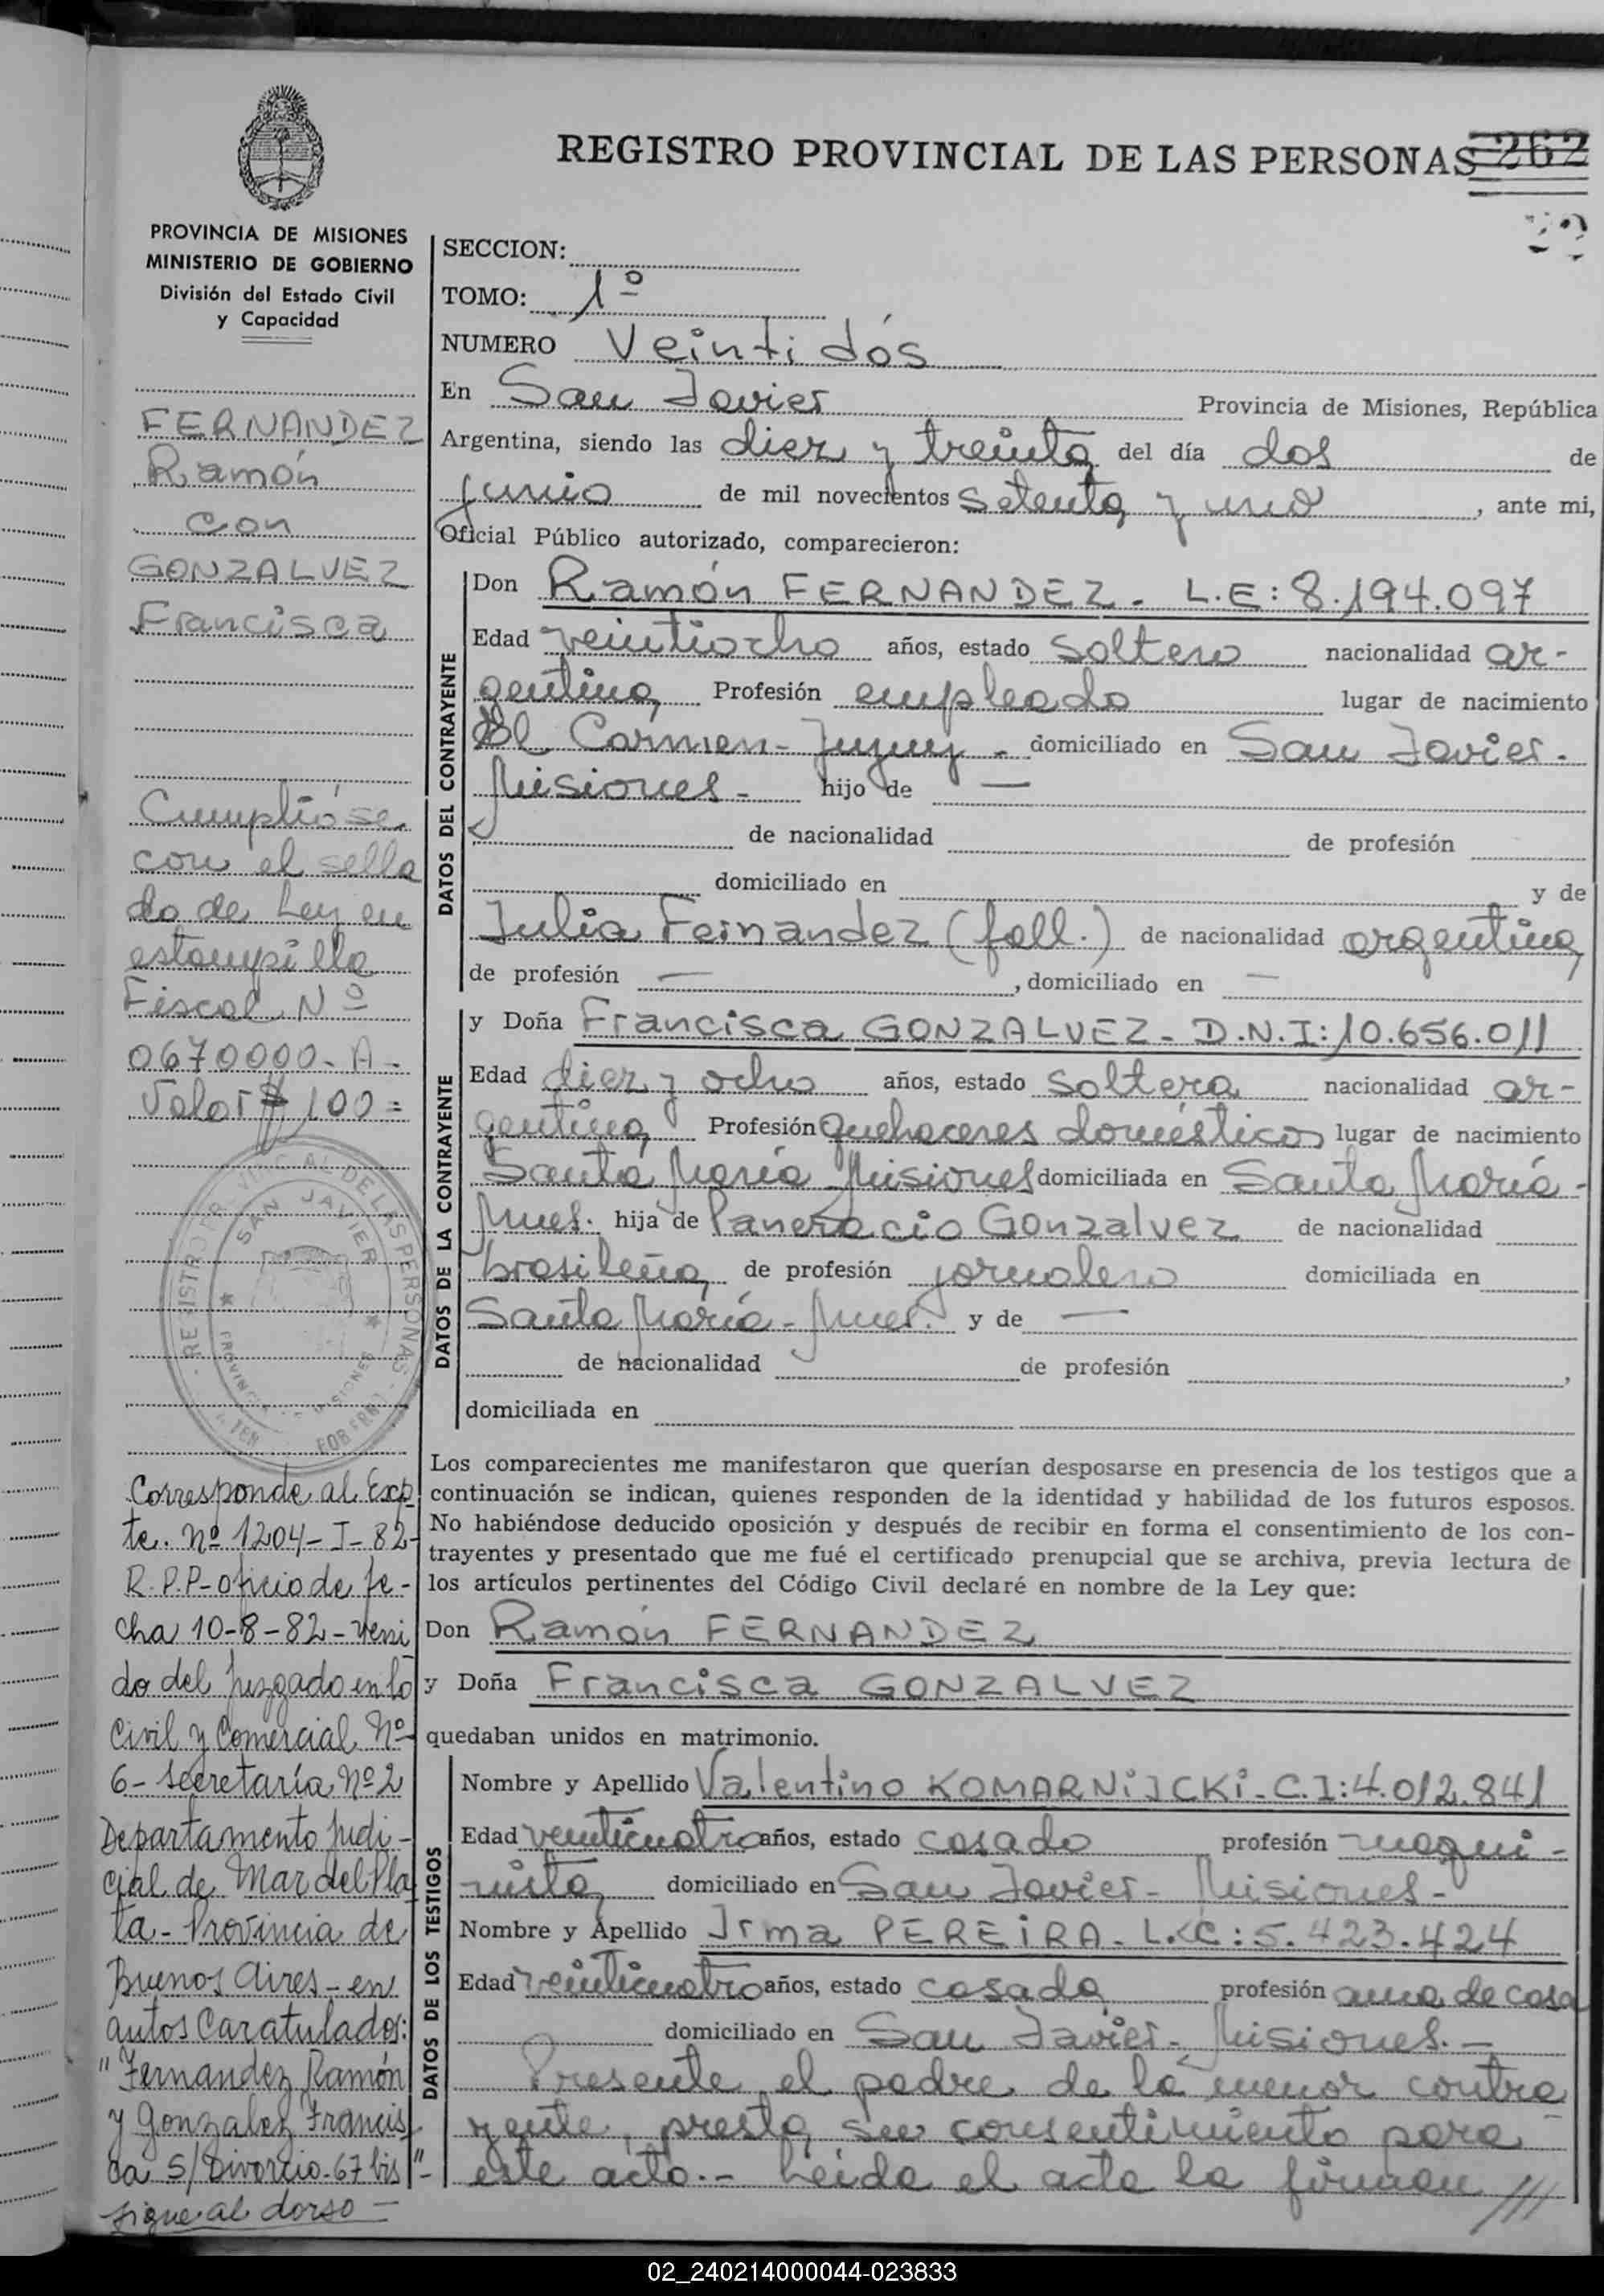 REGISTRO PROVINCIAL DE LAS PERSONAS 262
22
PROVINCIA DE MISIONES
MINISTERIO DE GOBIERNO
División del Estado Civil
y Capacidad
FERNANDEZ
Ramón
con
GONZALVEZ
Francisca
Cumplióse
con el sella
do de Ley en
estampilla
Fiscal Nº
0670000-A-
Valor $ 100=
REGISTRO PROVINCIAL DE LAS PERSONAS
SAN JAVIER
PROVINCIA MISIONES
Corresponde al Exp
te. Nº 1204-I-82-
R.P.P-oficio de fe-
cha 10-8-82-veni
do del Juzgado en lo
Civil y Comercial Nº
6-Secretaría Nº2
Departamento Judi-
cial de Mar del Pla
ta-Provincia de
Buenos Aires-en
autos Caratulados:
"Fernandez Ramón
y Gonzalez Francis
ca S/Divorcio-67 bis"-
sigue al dorso-
SECCION:
TOMO: 1º
NUMERO Veintidós
En San Javier Provincia de Misiones, República
Argentina, siendo las diez y treinta del día dos de
junio de mil novecientos setenta y uno, ante mi,
Oficial Público autorizado, comparecieron:
DATOS DEL CONTRAYENTE
Don Ramón FERNANDEZ- L.E: 8.194.097
Edad veintiocho años, estado soltero nacionalidad ar-
gentina Profesión empleado lugar de nacimiento
El Carmen-Jujuy- domiciliado en San Javier-
Misiones- hijo de —
de nacionalidad de profesión
domiciliado en y de
Julia Fernandez (fall.) de nacionalidad argentina
de profesión —, domiciliado en —
DATOS DE LA CONTRAYENTE
y Doña Francisca GONZALVEZ- D.N.I: 10.656.011
Edad diez y ocho años, estado soltera nacionalidad ar-
gentina Profesión quehaceres domésticos lugar de nacimiento
Santa María Misiones domiciliada en Santa María-
Mnes. hija de Paneracio Gonzalvez de nacionalidad
brasileña de profesión jornalero domiciliada en
Santa María-Mnes. y de —
de nacionalidad de profesión ,
domiciliada en
Los comparecientes me manifestaron que querían desposarse en presencia de los testigos que a
continuación se indican, quienes responden de la identidad y habilidad de los futuros esposos.
No habiéndose deducido oposición y después de recibir en forma el consentimiento de los con-
trayentes y presentado que me fué el certificado prenupcial que se archiva, previa lectura de
los artículos pertinentes del Código Civil declaré en nombre de la Ley que:
Don Ramón FERNANDEZ
y Doña Francisca GONZALVEZ
quedaban unidos en matrimonio.
DATOS DE LOS TESTIGOS
Nombre y Apellido Valentino KOMARNIJCKI- C.I: 4.012.841
Edad veinticuatro años, estado casado profesión maqui-
nista domiciliado en San Javier- Misiones-
Nombre y Apellido Irma PEREIRA- L.C: 5.423.424
Edad veinticuatro años, estado casada profesión ama de casa
domiciliado en San Javier- Misiones.-
Presente el padre de la menor contra
yente, presta su consentimiento para
este acto.- Leída el acta la firman ///
02_240214000044-023833